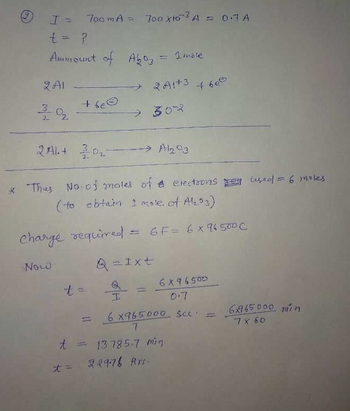 ② I = 700 mA = 700 × 10⁻³ A = 0.7 A
t = ?
Ammount of Al₂O₃ = 1 mole
2Al ⟶ 2Al⁺³ + 6e⊖
3/2 O₂ + 6e⊖ ⟶ 3O⁻²
2Al + 3/2 O₂ ⟶ Al₂O₃
* Thus No. of moles of electrons used = 6 moles
(to obtain 1 mole of Al₂O₃)
Charge required = 6F = 6 × 96500C
Now Q = I × t
t = Q/I = 6 × 96500/0.7
= 6 × 965000/7 sec. = 6×965000/7 × 60 min
t = 13785.7 min
t = 229.76 Hrs.